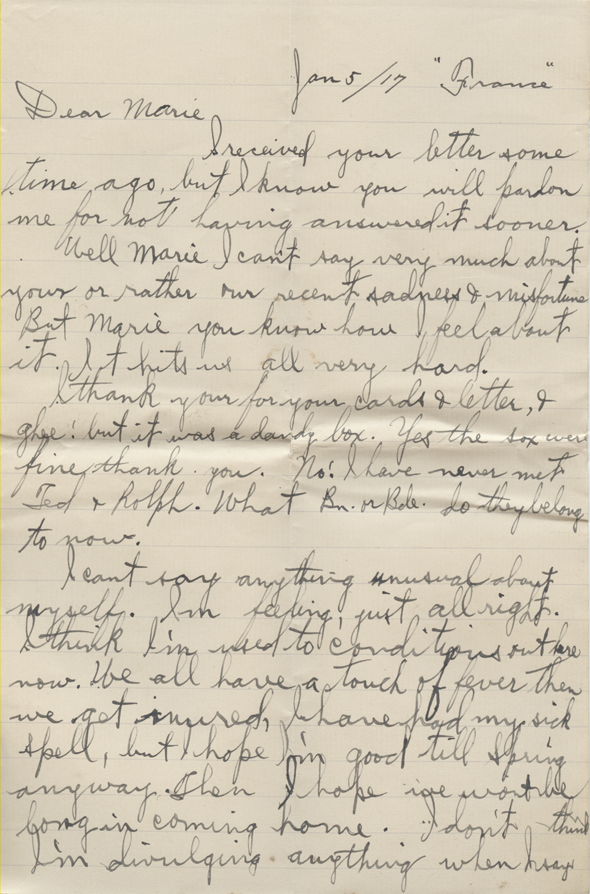 Jan 5/17 "France"
Dear Marie
I received your letter some
time, ago, but I know you will pardon
me for not having answered it sooner.
Well Marie I cant say very much about
your or rather our recent sadness & misfortune
But Marie you know how I feel about
it. It hits us all very hard.
I thank your for your cards & letter, &
ghee! but it was a dandy box. Yes the sox were
fine, thank you. No! I have never met
Ted & Rolph. What Bn. or Bde. do they belong
to now.
I cant say anything unusual about
myself. I'm feeling, just all right.
I think I'm used to conditions out here
now. We all have a touch of fever then
we get inured, I have had my sick
spell, but I hope I'm good till Spring
anyway. Then I hope we wont be
long in coming home. I don't think
I'm divulging anything when I say